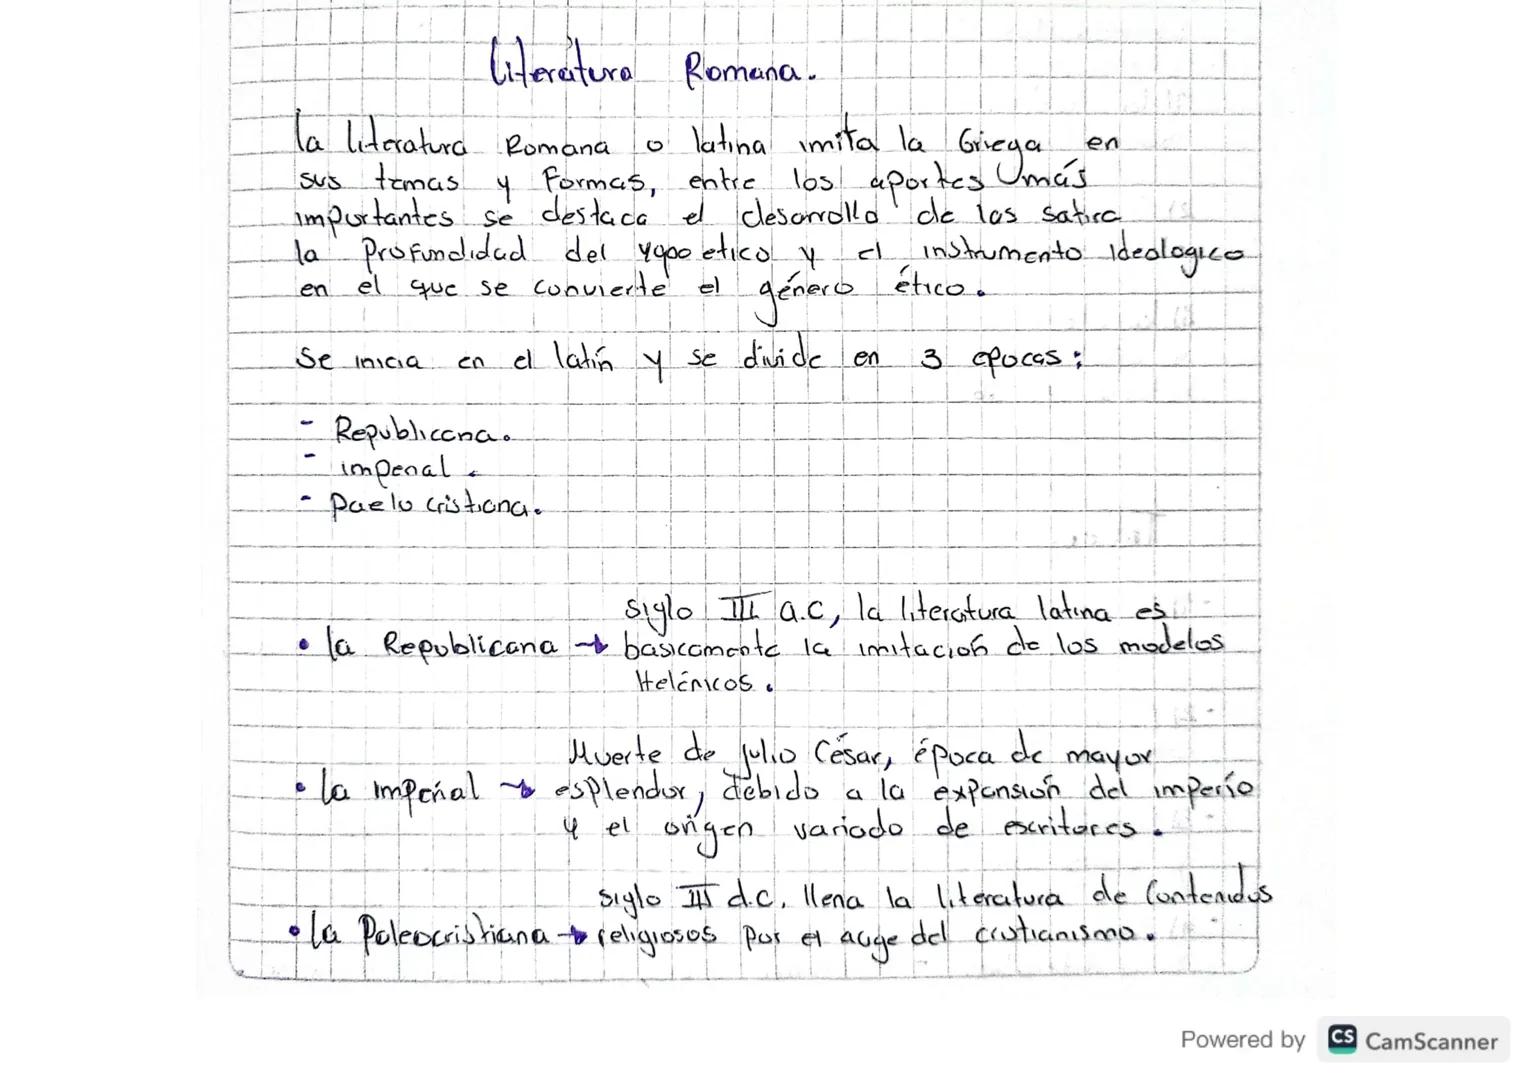 Literatura Romana.
la literatura Romana o latina imita la Griega en
sus temas y Formas, entre los aportes más
importantes se destaca el desarrollo de las satira
la Profundidad del poetico y el instrumento Ideologico
en el que se convierte el género ético.
Se inicia en el latín y se divide en 3 epocas:
- Republicana.
- imperial.
- Paelo cristiana.
siglo III a.c, la literatura latina es
• la Republicana → basicamente la imitación de los modelos
Helénicos.
Muerte de julio César, época de mayor
• la imperial → esplendor, debido a la expansión del imperio
y el origen variado de escritores.
siglo III d.c. llena la literatura de Contenidos
• la Paleocristiana → religiosos por el auge del cristianismo.
Powered by CS CamScanner